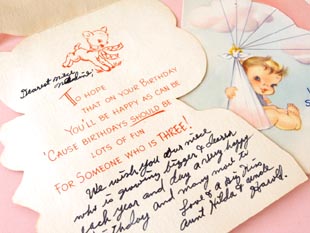 Dearest niece
To hope
that on your Birthday
You'll be happy as can be
'Cause birthdays should be
lots of fun
For Someone who is Three!
We wish you our niece
who is growing bigger & dearer
each year and day a very happy
birthday and many more to
Love & a Big Kiss,
Aunt Hilda & Uncle
Harold.